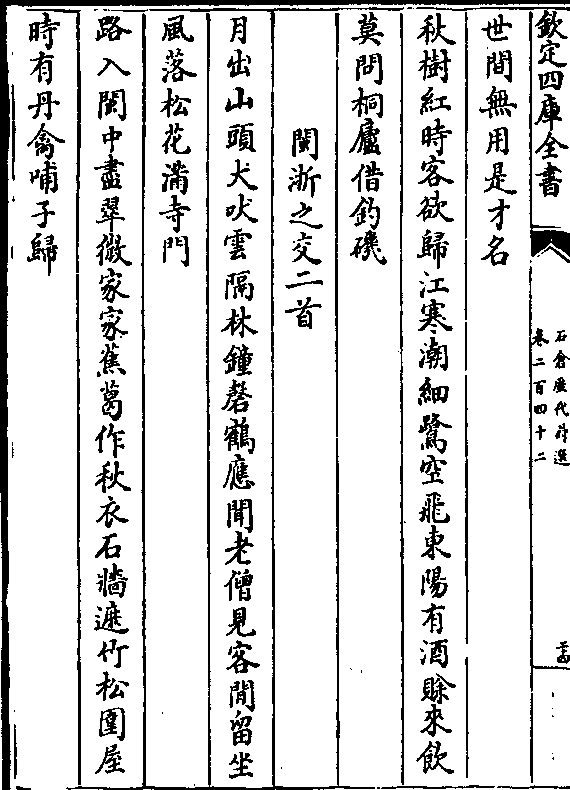 欽定四庫全書
石倉歷代詩選
卷二百四十二
世間無用是才名
秋樹紅時客欲歸江寒潮細鷺空飛東陽有酒賒來飲
莫問桐廬借釣磯
閩浙之交二首
月出山頭犬吠雲隔林鐘磬鶴應聞老僧見客閒留坐
風落松花滿寺門
路入閩中盡翠微家家蕉葛作秋衣石牆遮竹松圍屋
時有丹禽哺子歸